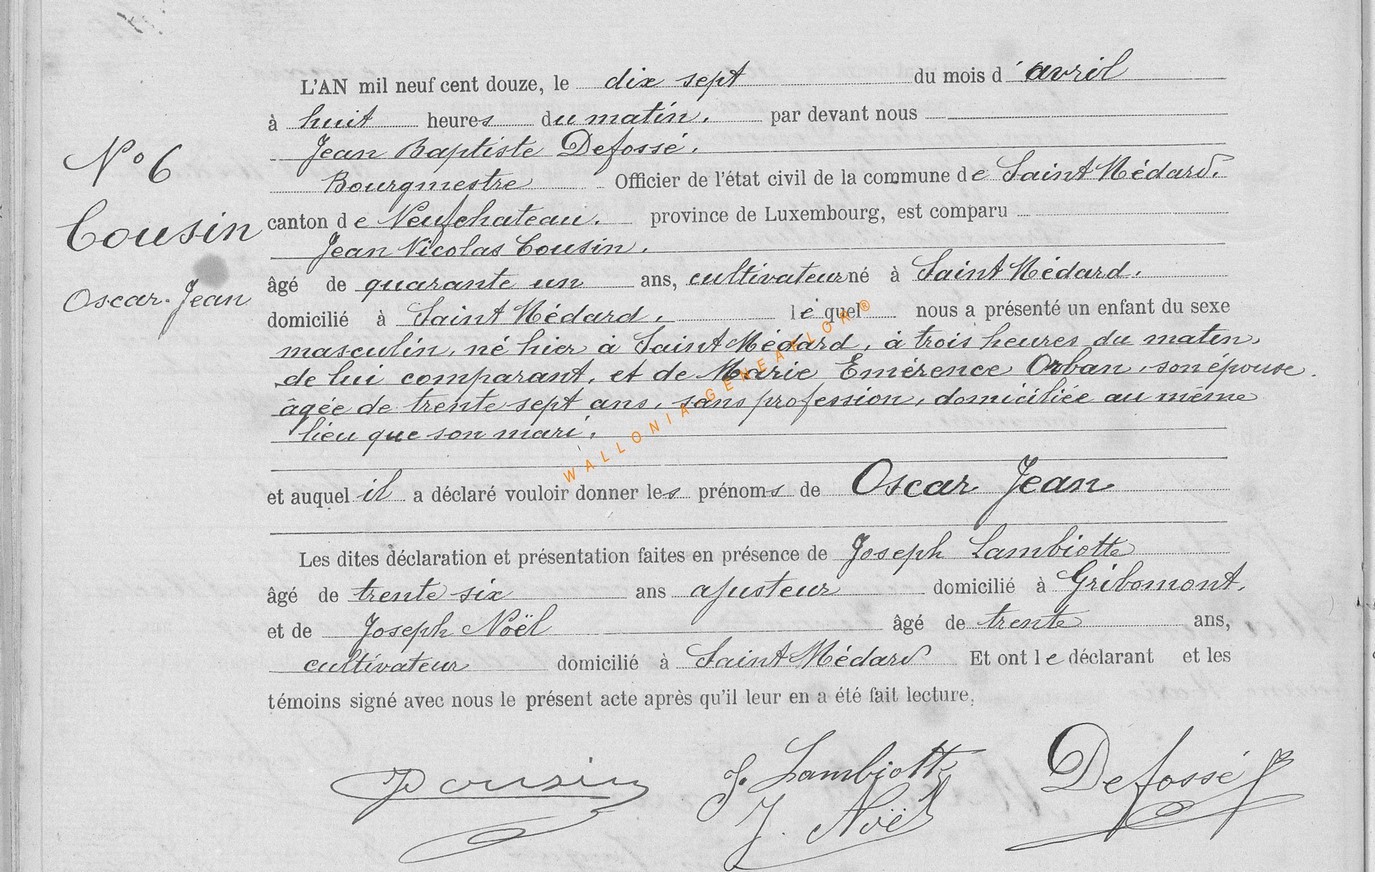 L'AN mil neuf cent douze, le dix sept du mois d'avril
à huit heures du matin, par devant nous
Jean Baptiste Defossé,
Bourgmestre Officier de l'état civil de la commune de Saint Médard,
canton de Neufchateau, province de Luxembourg, est comparu
Jean Nicolas Cousin,
âgé de quarante un ans, cultivateur né à Saint Médard,
domicilié à Saint Médard, lequel nous a présenté un enfant du sexe
masculin, né hier à Saint Médard, à trois heures du matin,
de lui comparant, et de Marie Emérence Orban, son épouse,
âgée de trente sept ans, sans profession, domiciliée au même
lieu que son mari,
et auquel il a déclaré vouloir donner les prénoms de Oscar Jean
Les dites déclaration et présentation faites en présence de Joseph Lambiotte
âgé de trente six ans ajusteur domicilié à Gribomont,
et de Joseph Noël âgé de trente ans,
cultivateur domicilié à Saint Médard Et ont le déclarant et les
témoins signé avec nous le présent acte après qu'il leur en a été fait lecture,
N° 6
Cousin
Oscar Jean
WALLONIA GENEAWLOR ®
Cousin
J. Lambiotte
J. Noël
Defossé JB